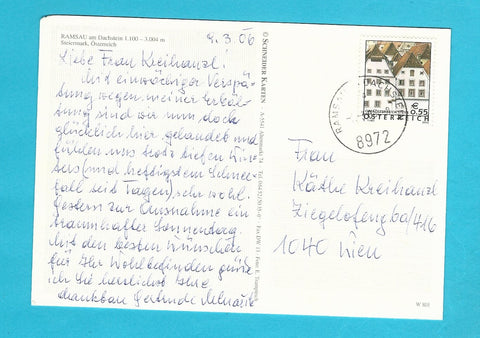 RAMSAU am Dachstein 1.100 – 3.004 m
Steiermark, Österreich
9.3.06
Liebe Frau Kreihanzl!
Mit einwöchiger Verspä-
tung wegen meiner Erkäl-
tung sind wir nun doch
glücklich hier gelandet und
fühlen uns trotz tiefen Tem-
peraturen und heftigstem Schnee-
fall seit Tagen, sehr wohl.
Gestern zur Ausnahme ein
traumhafter Sonnentag.
Mit den besten Wünschen
für Ihr Wohlbefinden grüße
ich Sie herzlichst Ihre
dankbare Gertrude
© SCHNEIDER KARTEN
0,55
ÖSTERREICH
RAMSAU
8972
Frau
Käthe Kreihanzl
Ziegelofeng 6a/4/16
1040 Wien